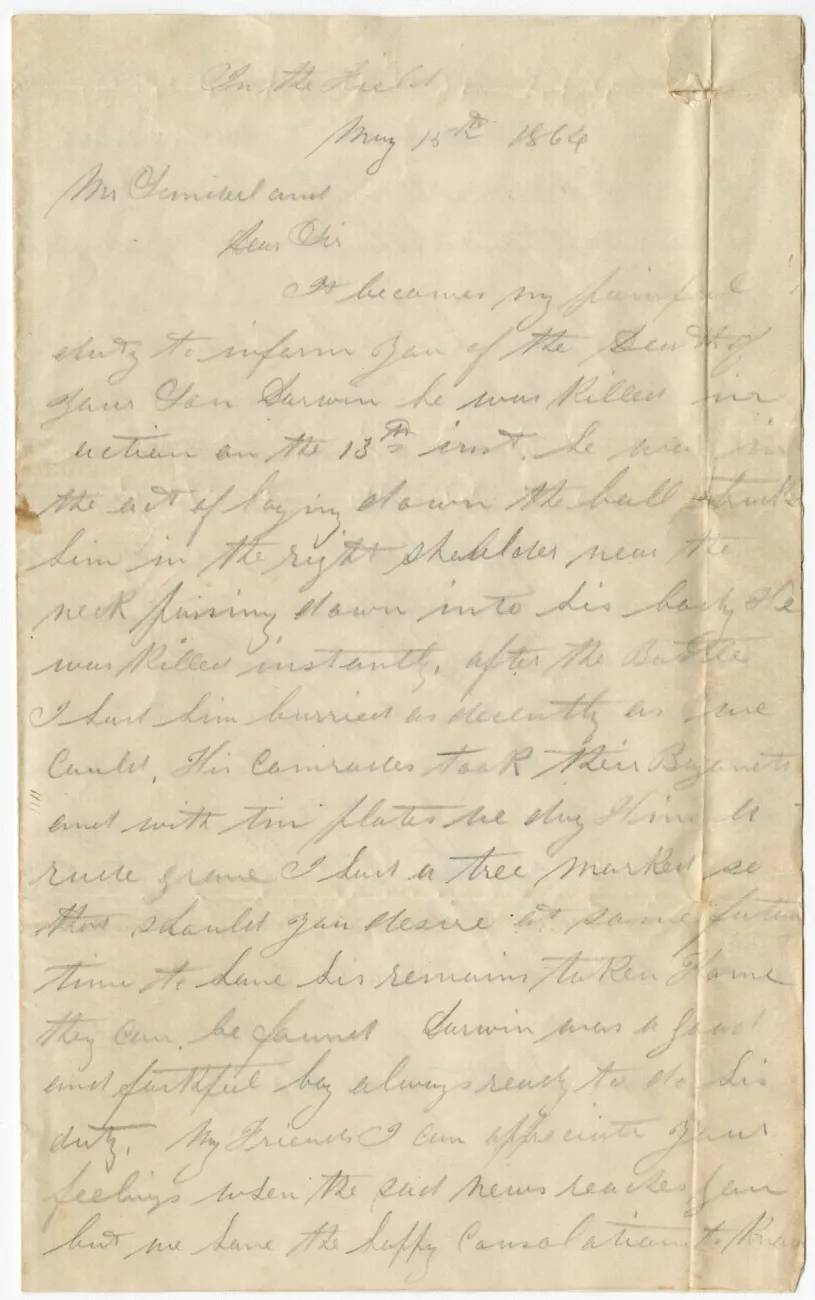 In the Field
May 15th 1864
Mr
Dear Sir
It becomes my painful
duty to inform you of the Death of
your Son Darwin he was Killed in
action on the 13th inst. he was in
the act of laying down the ball struck
him in the right shoulder near the
neck passing down into his body He
was Killed instantly. after the Battle
I had him burried as decently as we
Could. His Comrades took their Bayonets
and with tin plates we dug Him a
rude grave I had a tree marked so
that should you desire at some future
time to have his remains taken Home
they can be found Darwin was a good
and faithful boy always ready to do his
duty. My Friends I can appreciate your
feelings when the sad news reaches you
but we have the happy Consolation to Know